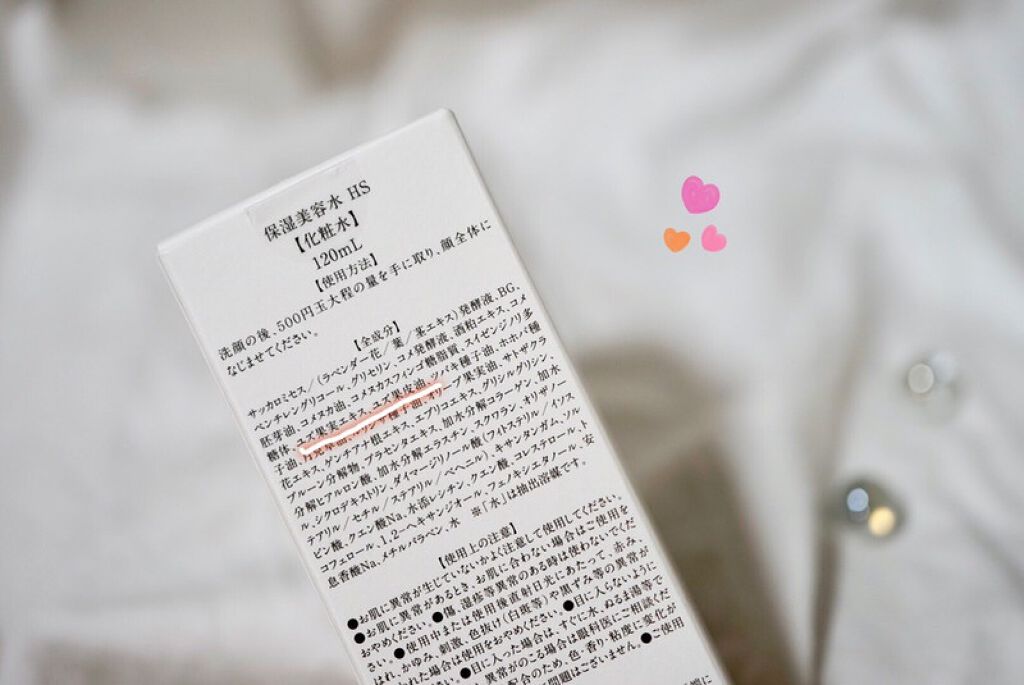 保湿美容水 HS
【化粧水】
120mL
【使用方法】
洗顔の後、500円玉大程の量を手に取り、顔全体に
なじませてください。
【全成分】
サッカロミセス/(ラベンダー花/葉/茎エキス)発酵液、BG、
ペンチレングリコール、グリセリン、コメ発酵液、酒粕エキス、コメ
胚芽油、コメヌカ油、コメヌカスフィンゴ糖脂質、スイゼンジノリ多
糖体、ユズ果実エキス、ユズ果皮油、ツバキ種子油、ホホバ種
子油、月見草油、種子油、オリーブ果実油、サトザクラ
花エキス、ゲンチアナ根エキス、エプリコエキス、グリシルグリシン、
プルーン分解物、プラセンタエキス、加水分解コラーゲン、加水
分解ヒアルロン酸、加水分解エラスチン、スクワラン、オリザノー
ル、シクロデキストリン、ダイマージリノール酸(フィトステリル/イソス
テアリル/セチル/ステアリル/ベヘニル)、キサンタンガム、ソル
ビン酸、クエン酸Na、水添レシチン、クエン酸、コレステロール、ト
コフェロール、1,2-ヘキサンジオール、フェノキシエタノール、安
息香酸Na、メチルパラベン、水 ※「水」は抽出溶媒です。
【使用上の注意】
●お肌に異常が生じていないかよく注意して使用してください。
●お肌に異常があるとき、お肌に合わない場合はご使用を
おやめください。●傷、湿疹等異常のある時は使わないでくだ
さい。●使用中または使用後直射日光にあたって、赤み
はれ、かゆみ、刺激、色抜け(白斑等)や黒ずみ等の異常が
現れた場合は使用をおやめください。●目に入らないように
●目に入った場合は、すぐに水、ぬるま湯等で
異常がのこる場合は眼科医にご相談くだ
配合のため、色・香り・粘度に変化が
問題はございません。●ご使用